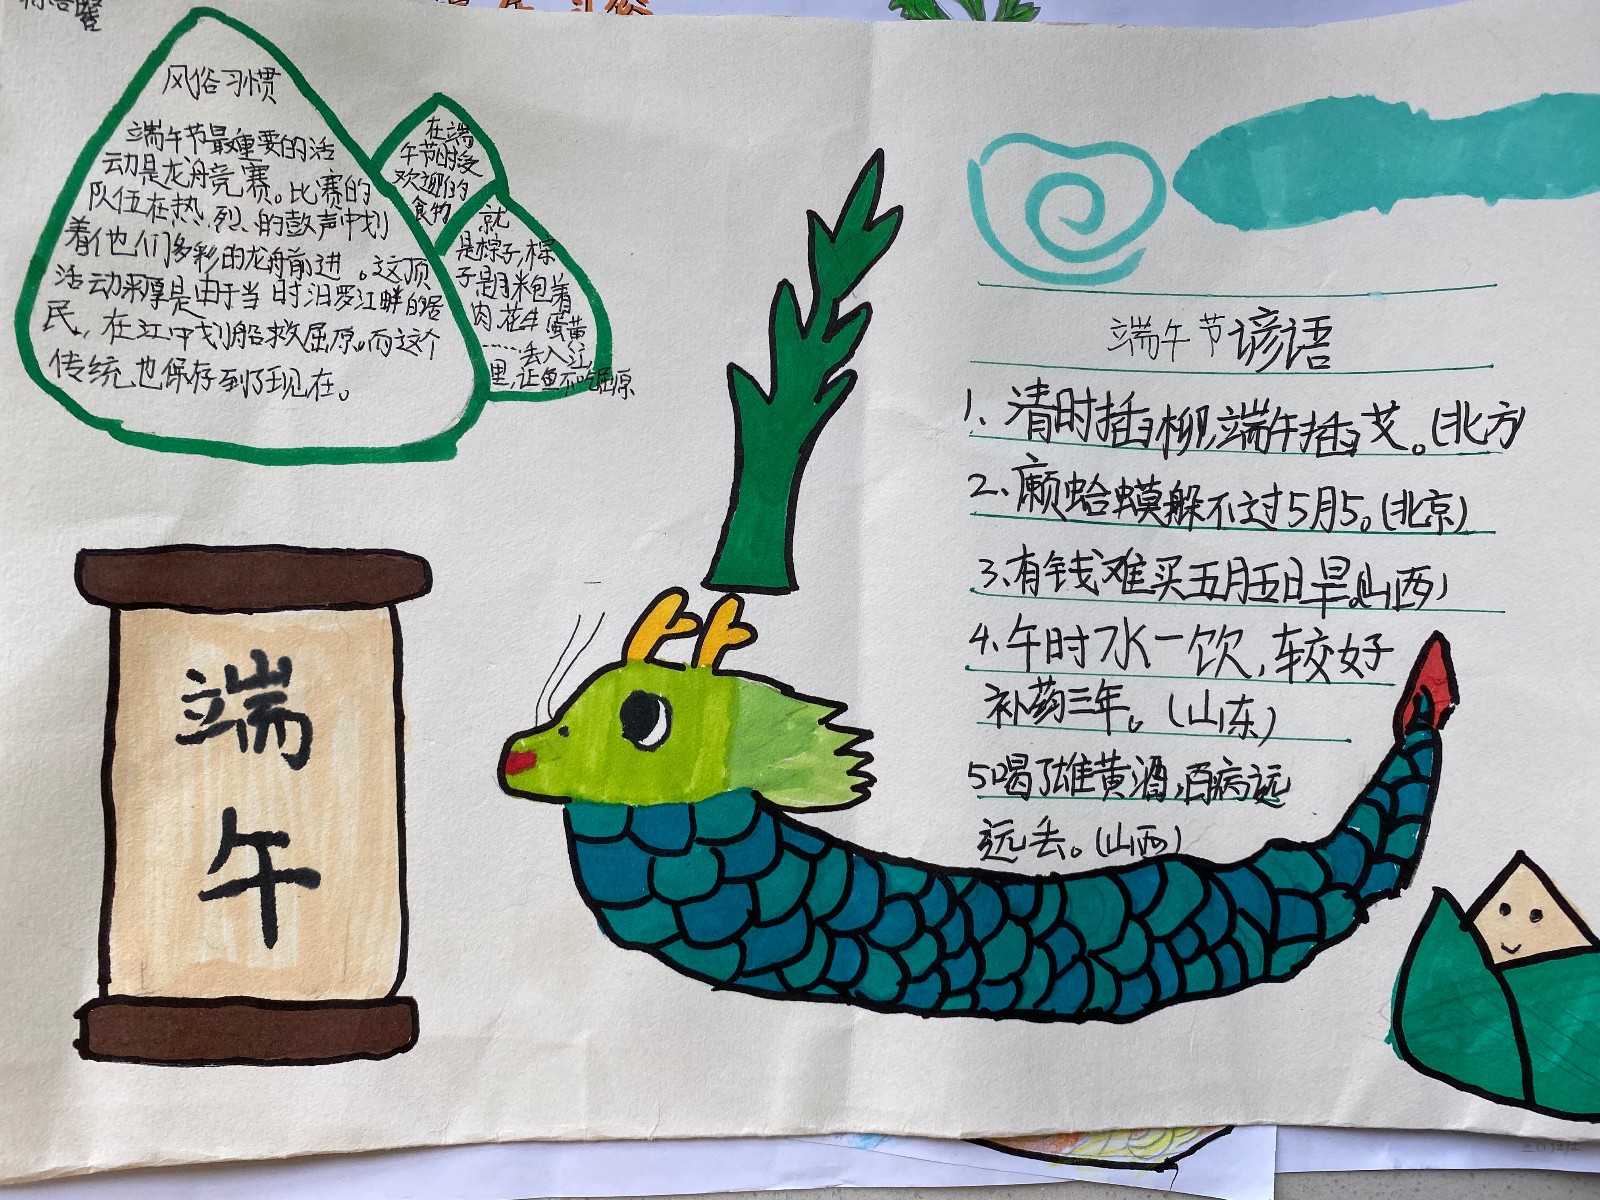 风俗习惯
端午节最重要的活
动是龙舟竞赛。比赛的
队伍在热烈的鼓声中划
着他们多彩的龙舟前进。这项
活动来源是由于当时汨罗江畔的居
民,在江中划船救屈原。而这个
传统也保存到了现在。
在端
午节时受
欢迎的
食物
就
是粽子,粽
子是用米包着
肉.花生.蛋黄
……丢入江
里,让鱼不吃屈原
端
午
端午节谚语
1、清时插柳,端午插艾。(北方)
2、癞蛤蟆躲不过5月5。(北京)
3、有钱难买五月五日旱。(山西)
4、午时水一饮,较好
补药三年。(山东)
5喝了雄黄酒,百病远
远去。(山西)